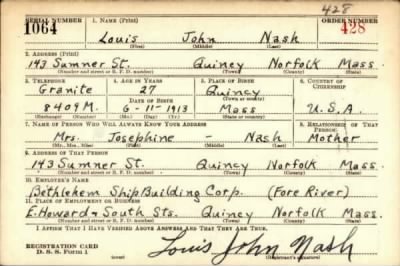 428
SERIAL NUMBER 1. NAME (Print) ORDER NUMBER
1064 Louis John Nash 428
(First) (Middle) (Last)
2. ADDRESS (Print)
143 Sumner St. Quincy Norfolk Mass.
(Number and street or R. F. D. number) (Town) (County) (State)
3. TELEPHONE 4. AGE IN YEARS 5. PLACE OF BIRTH 6. COUNTRY OF CITIZENSHIP
Granite 27 Quincy
DATE OF BIRTH (Town or county)
8409 M. 6-11-1913 Mass U.S.A.
(Exchange) (Number) (Mo.) (Day) (Yr.) (State or country)
7. NAME OF PERSON WHO WILL ALWAYS KNOW YOUR ADDRESS 8. RELATIONSHIP OF THAT PERSON
Mrs. Josephine - Nash Mother
(Mr., Mrs., Miss) (First) (Middle) (Last)
9. ADDRESS OF THAT PERSON
143 Sumner St. Quincy Norfolk Mass.
(Number and street or R. F. D. number) (Town) (County) (State)
10. EMPLOYER'S NAME
Bethlehem Ship Building Corp. (Fore River)
11. PLACE OF EMPLOYMENT OR BUSINESS
E. Howard & South Sts. Quincy Norfolk Mass.
(Number and street or R. F. D. number) (Town) (County) (State)
I AFFIRM THAT I HAVE VERIFIED ABOVE ANSWERS AND THAT THEY ARE TRUE.
REGISTRATION CARD
D. S. S. Form 1 Louis John Nash
(Registrant's signature)